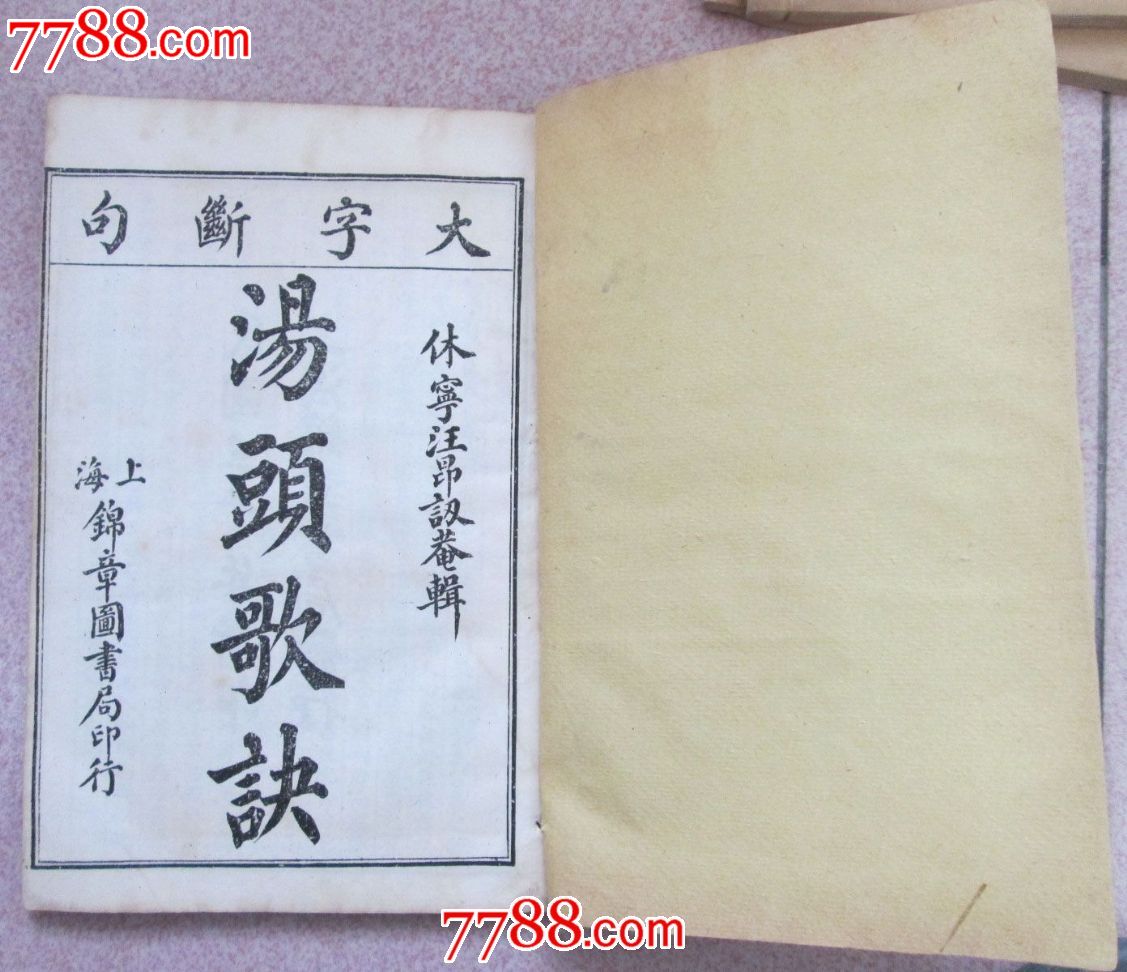 7788.com收藏
大字斷句
休寧汪昂訒菴輯
湯頭歌訣
上海
錦章圖書局印行
7788.com收藏